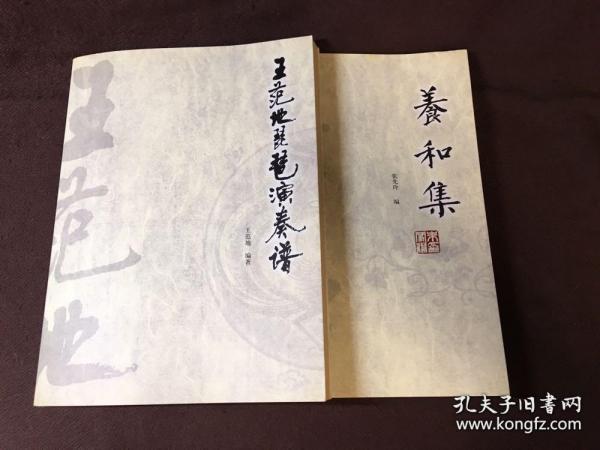 王范地
王范地琵琶演奏谱
王范地 编著
養和集
张先玲 编
孔夫子旧书网
www.kongfz.com